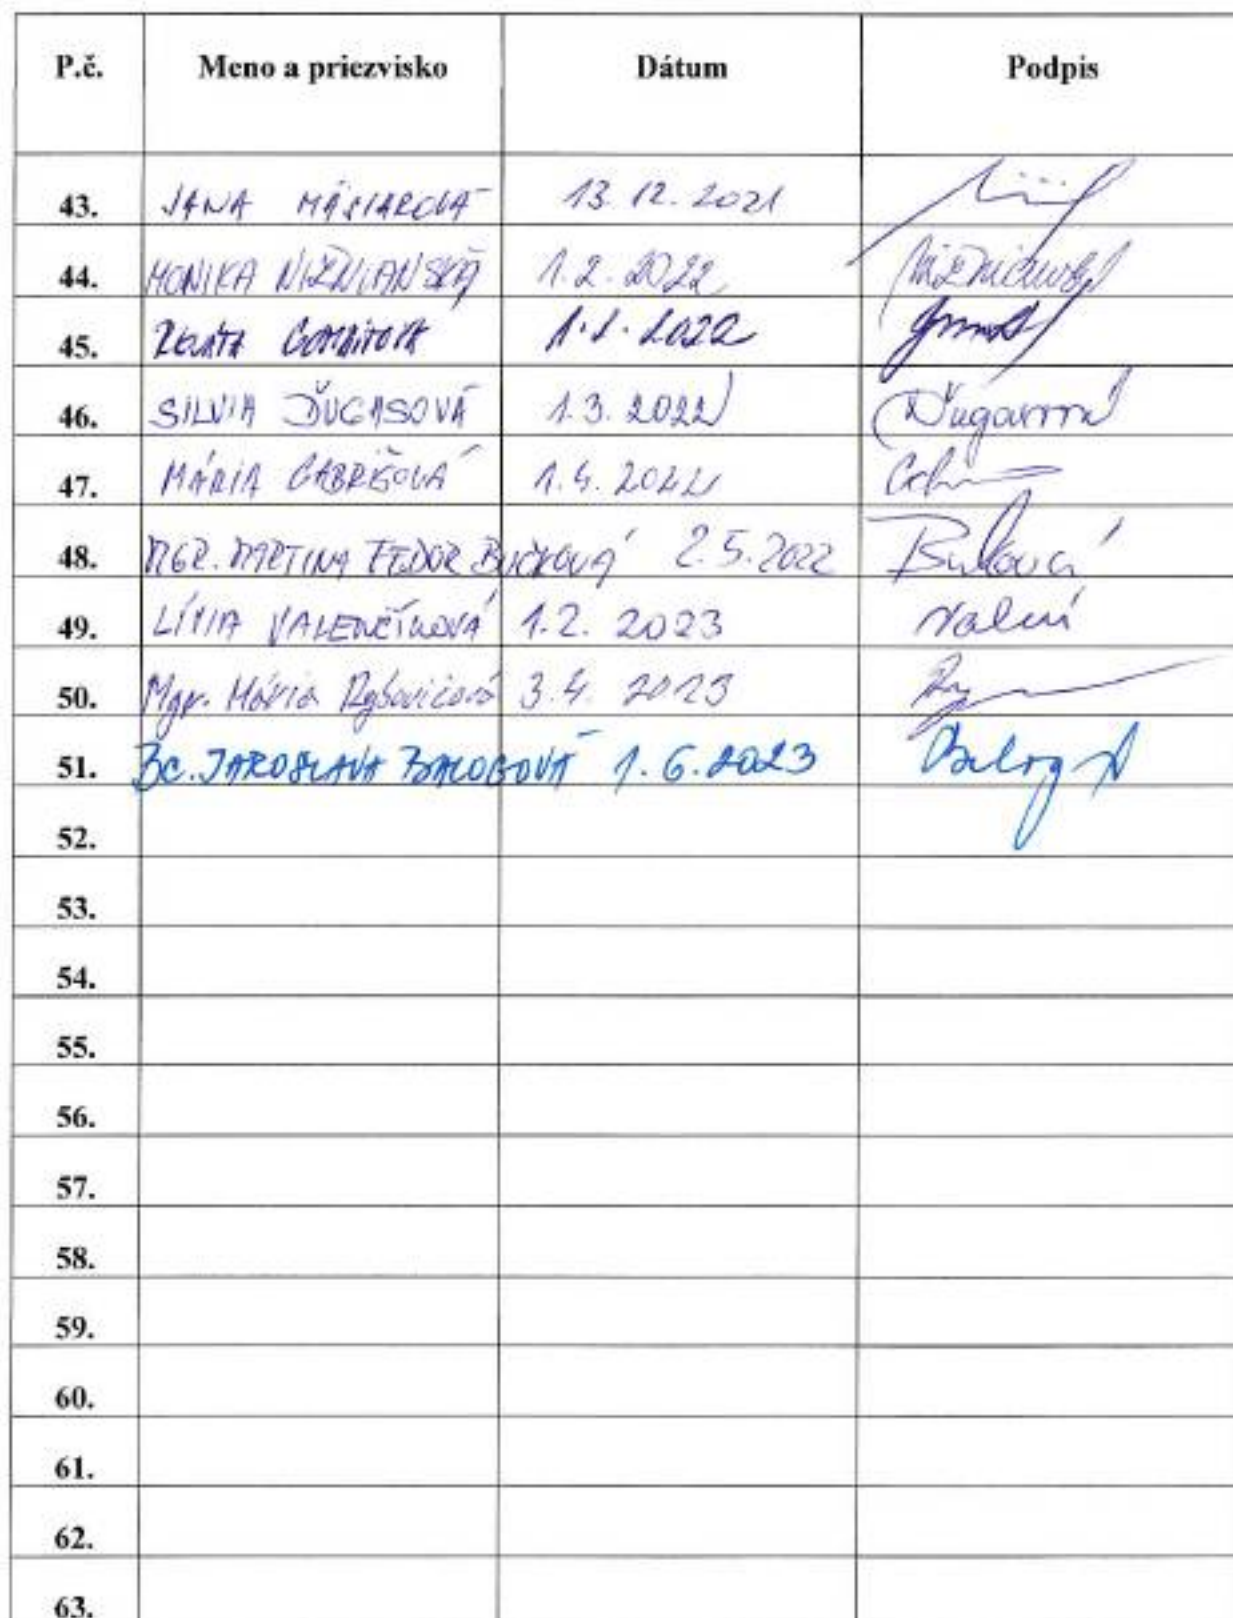 P.č. Meno a priezvisko Dátum Podpis
43. JANA MÁSIAROVÁ 13.12.2021
44. MONIKA NIŽNIANSKÁ 1.2.2022
45. RENÁTA GOMBITOVÁ 1.2.2022
46. SILVIA ĎUGASOVÁ 1.3.2022
47. MÁRIA GABRIŠOVÁ 1.4.2022
48. MGR. MARTINA FEDOR BUČKOVÁ 2.5.2022
49. LÍVIA VALENČÍKOVÁ 1.2.2023
50. Mgr. Mária 3.4.2023
51. BC. JAROSLAVA BALOGOVÁ 1.6.2023 Balog
52.
53.
54.
55.
56.
57.
58.
59.
60.
61.
62.
63.